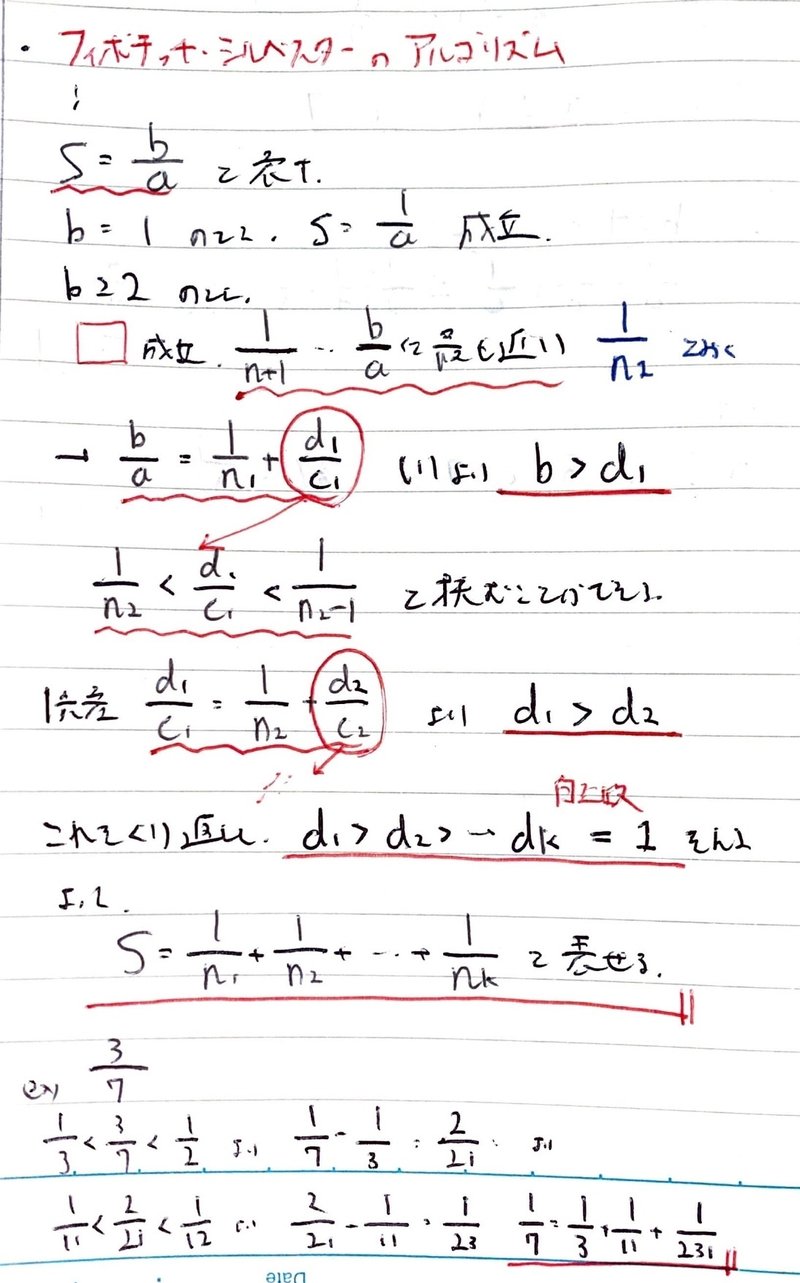 ・フィボナッチ・シルベスターの アルゴリズム
S = b/a と表す.
b = 1 のとき. S = 1/a 成立.
b ≥ 2 のとき.
□ 成立. 1/(n+1) … b/a に最も近い 1/n₂ とおく
→ b/a = 1/n₁ + d₁/c₁ (1)より b > d₁
1/n₂ < d₁/c₁ < 1/(n₂-1) と挟むことができる.
d₁/c₁ = 1/n₂ + d₂/c₂ より d₁ > d₂
これをくり返し. d₁ > d₂ > … dk = 1
よって.
S = 1/n₁ + 1/n₂ + … + 1/nk と表せる.
ex) 3/7
1/3 < 3/7 < 1/2 より 1/7 - 1/3 = 2/21 より
1/11 < 2/21 < 1/12 より 2/21 - 1/11 = 1/23 1/7 = 1/3 + 1/11 + 1/231
Date